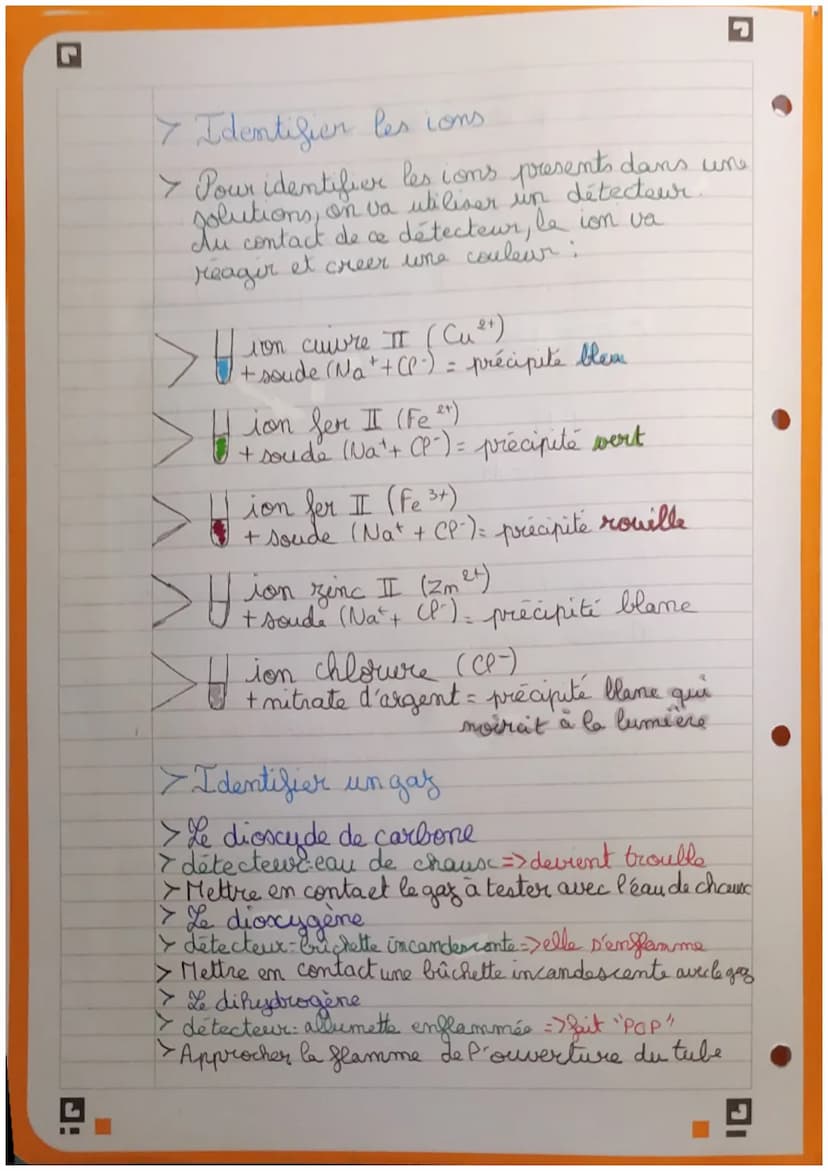 > Identifier les ions
> Pour identifier les ions presents dans une
solutions, on va utiliser un détecteur.
Au contact de ce détecteur, le ion va
réagir et creer une couleur :
> ion cuivre II (Cu²⁺)
+ soude (Na⁺ + Cl⁻) = précipité bleu
> ion fer II (Fe²⁺)
+ soude (Na⁺ + Cl⁻) = précipité vert
> ion fer II (Fe³⁺)
+ soude (Na⁺ + Cl⁻) = précipité rouille
> ion zinc II (Zn²⁺)
+ soude (Na⁺ + Cl⁻) = précipité blanc
> ion chlorure (Cl⁻)
+ nitrate d'argent = précipité blanc qui
noircit à la lumière
> Identifier un gaz
> Le dioxyde de carbone
> détecteur: eau de chaux => devient trouble
> Mettre en contact le gaz à tester avec l'eau de chaux
> Le dioxygène
> détecteur = bûchette incandescente => elle s'enflamme
> Mettre en contact une bûchette incandescente avec le gaz
> Le dihydrogène
> détecteur: allumette enflammée => fait "POP"
> Approcher la flamme de l'ouverture du tube